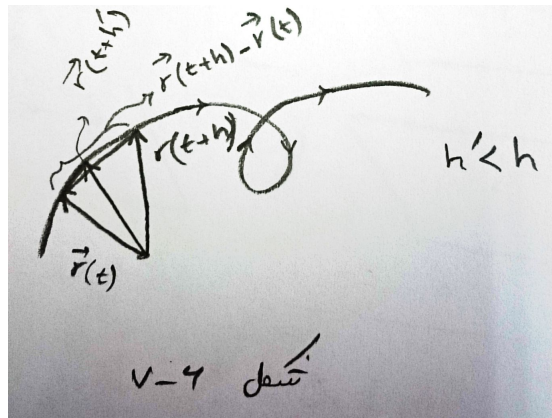 r⃗(t+h')
r⃗(t+h) - r⃗(t)
r⃗(t+h)
h' < h
r⃗(t)
شکل ۷-۲